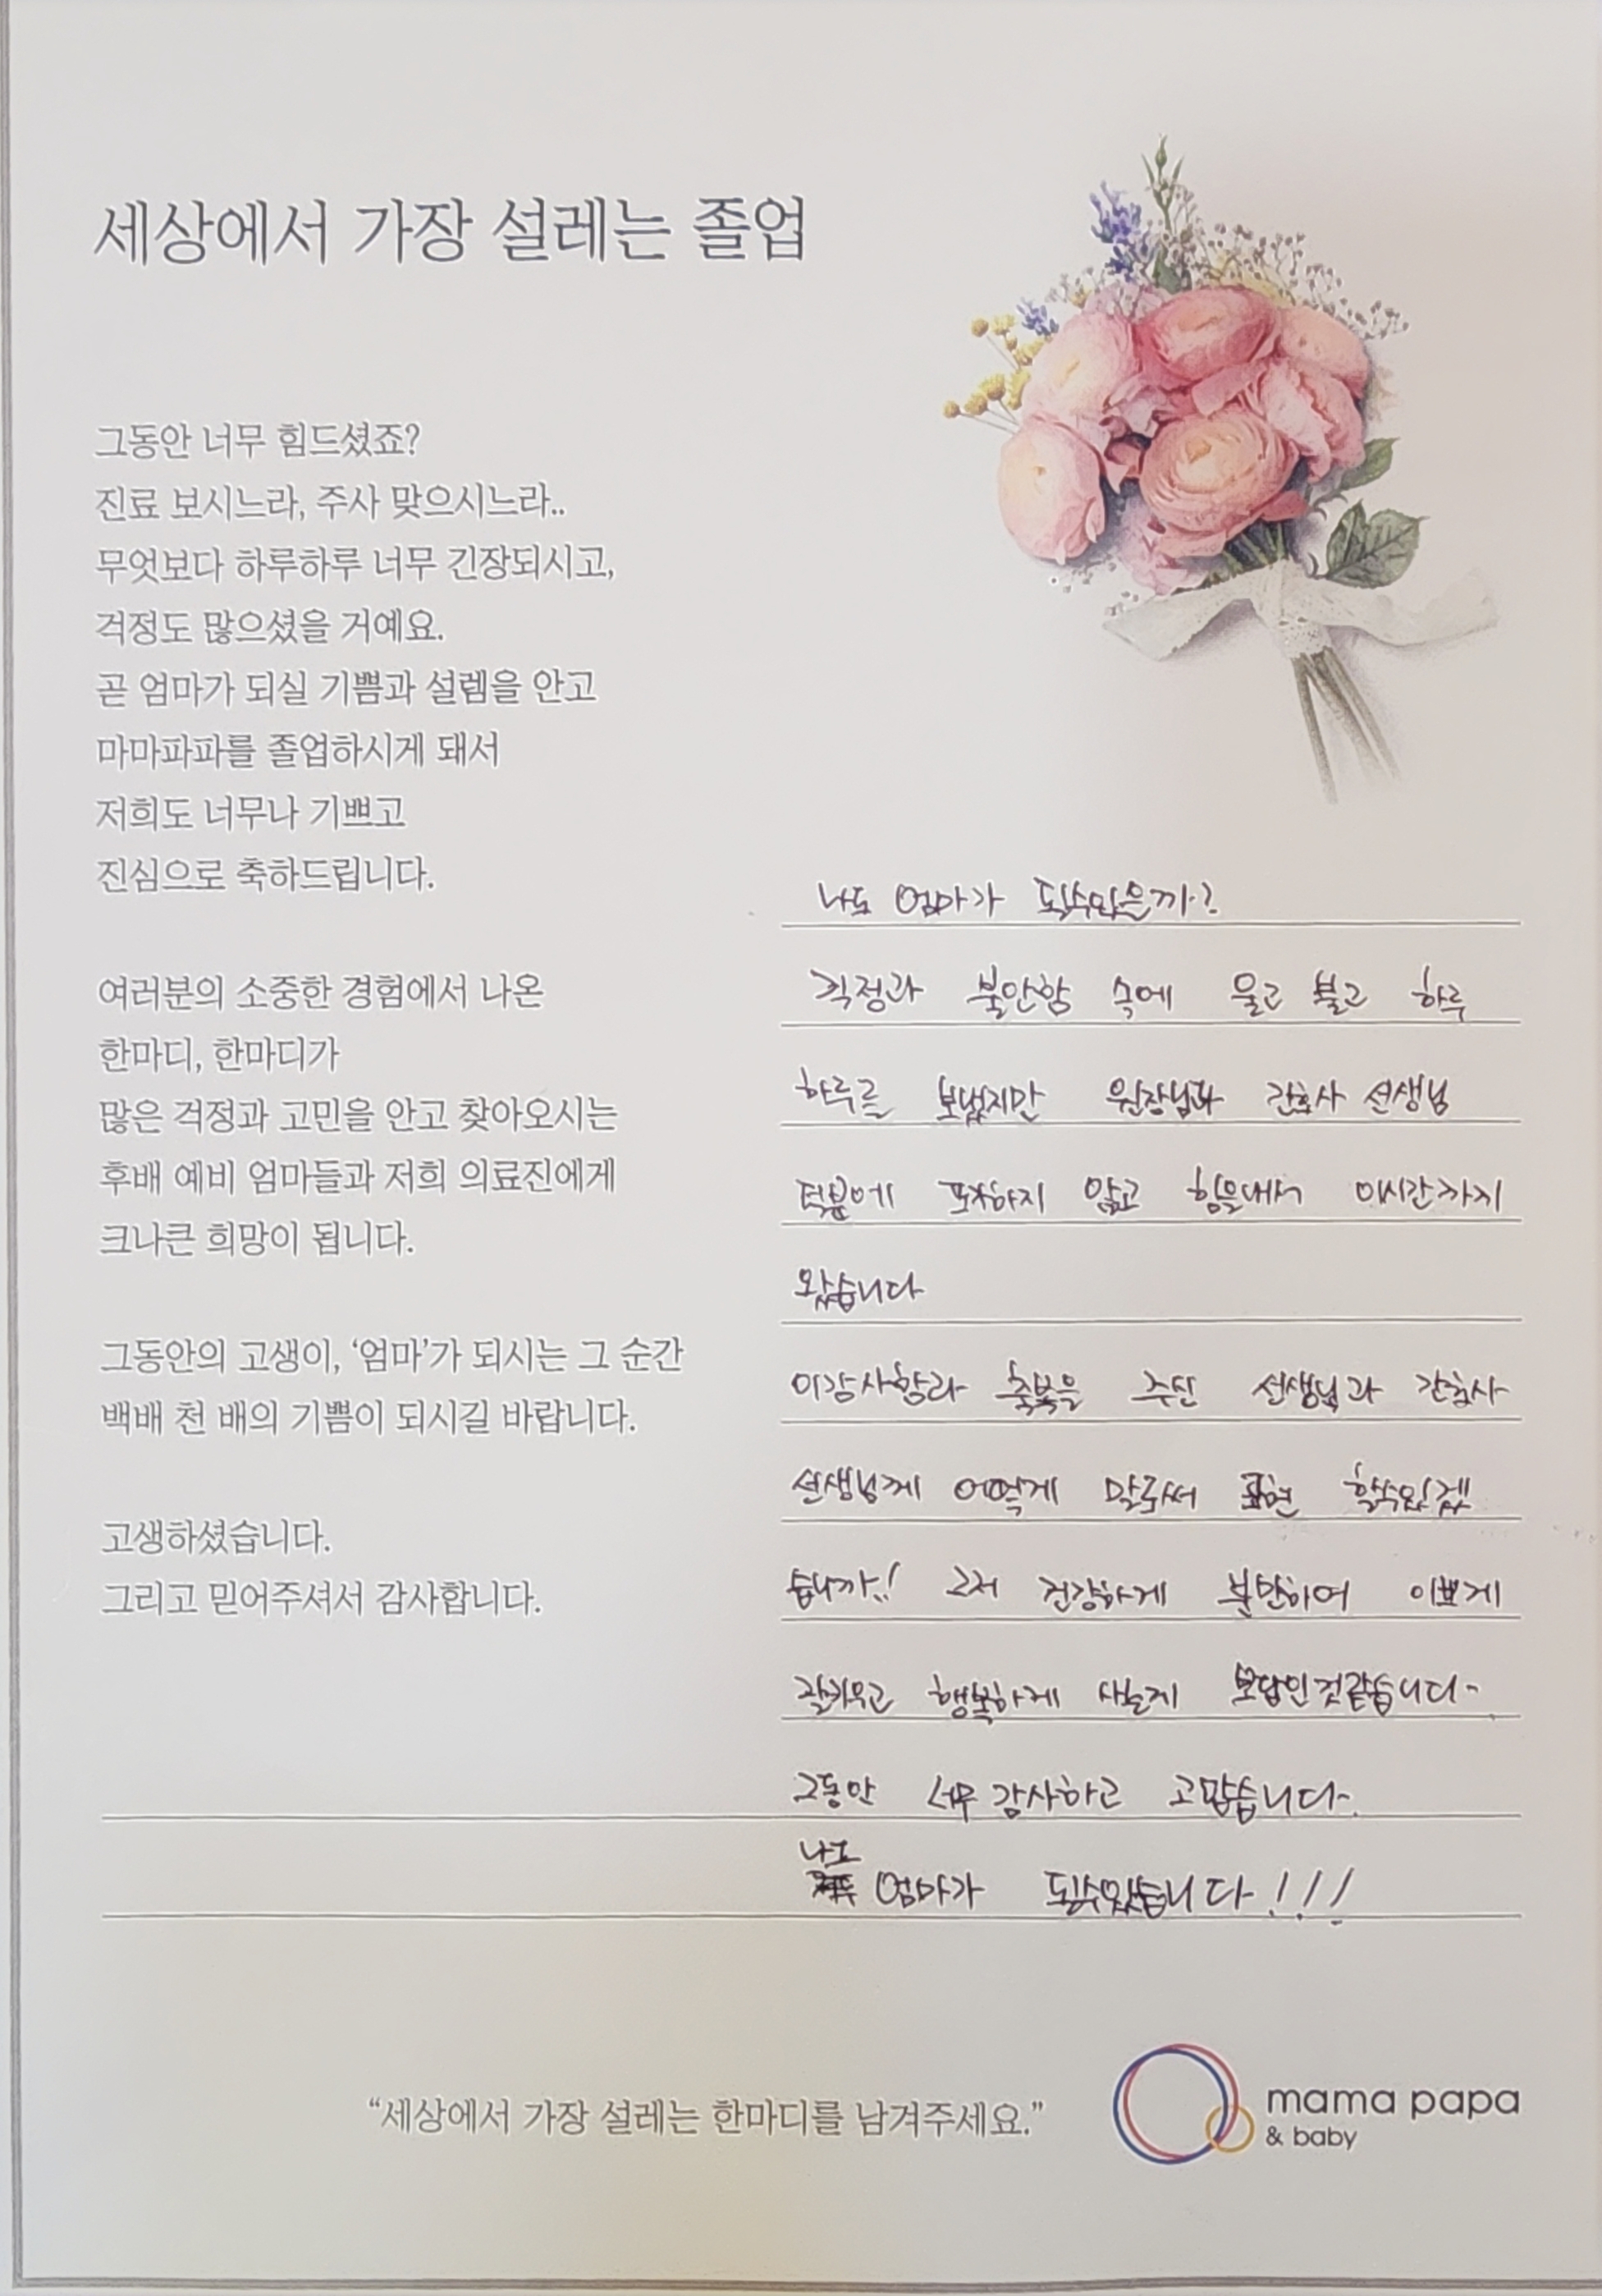 세상에서 가장 설레는 졸업
그동안 너무 힘드셨죠?
진료 보시느라, 주사 맞으시느라..
무엇보다 하루하루 너무 긴장되시고,
걱정도 많으셨을 거예요.
곧 엄마가 되실 기쁨과 설렘을 안고
마마파파를 졸업하시게 돼서
저희도 너무나 기쁘고
진심으로 축하드립니다.
여러분의 소중한 경험에서 나온
한마디, 한마디가
많은 걱정과 고민을 안고 찾아오시는
후배 예비 엄마들과 저희 의료진에게
크나큰 희망이 됩니다.
그동안의 고생이, ‘엄마’가 되시는 그 순간
백배 천 배의 기쁨이 되시길 바랍니다.
고생하셨습니다.
그리고 믿어주셔서 감사합니다.
나도 엄마가 될수있을까?
걱정과 불안함 속에 울고 불고 하루
하루를 보냈지만 원장님과 간호사 선생님
덕분에 포기하지 않고 힘을내서 이시간까지
왔습니다
이감사함과 축복을 주신 선생님과 간호사
선생님께 어떻게 말로써 표현 할수있겠
습니까..! 그저 건강하게 분만하여 이쁘게
잘키우고 행복하게 사는게 보답인것같습니다~
그동안 너무 감사하고 고맙습니다~.
나도
엄마가 될수있습니다!!!
“세상에서 가장 설레는 한마디를 남겨주세요.”
mama papa
& baby